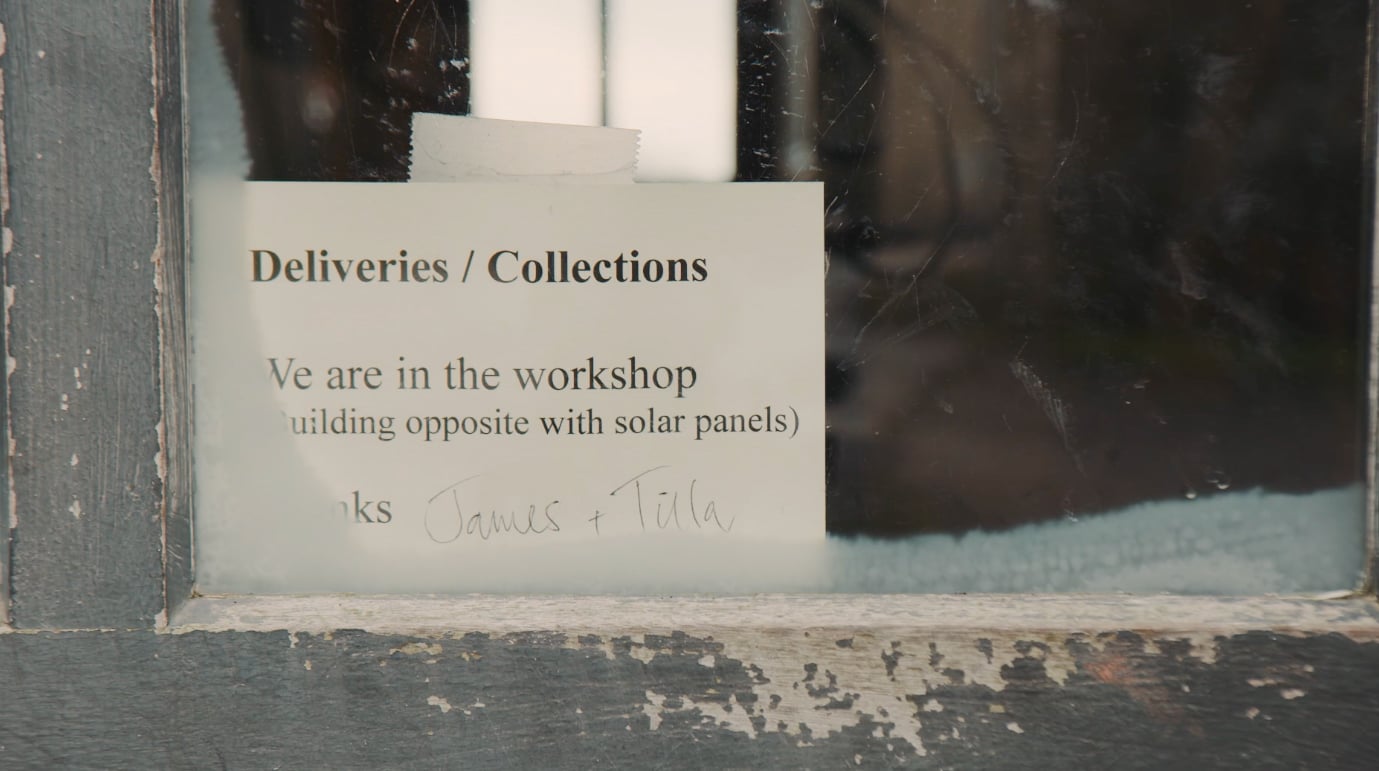 Deliveries / Collections
We are in the workshop
building opposite with solar panels)
James + Tilla